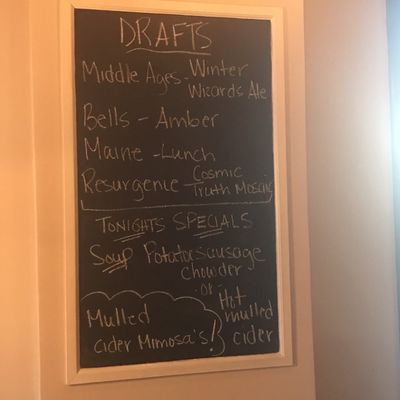 DRAFTS
Middle Ages - Winter
Wizards Ale
Bells - Amber
Maine - Lunch
Resurgence - Cosmic
Truth Mosaic
TONIGHTS SPECIALS
Soup Potato sausage
chowder
- or -
Hot
mulled
cider
Mulled
cider Mimosa's!